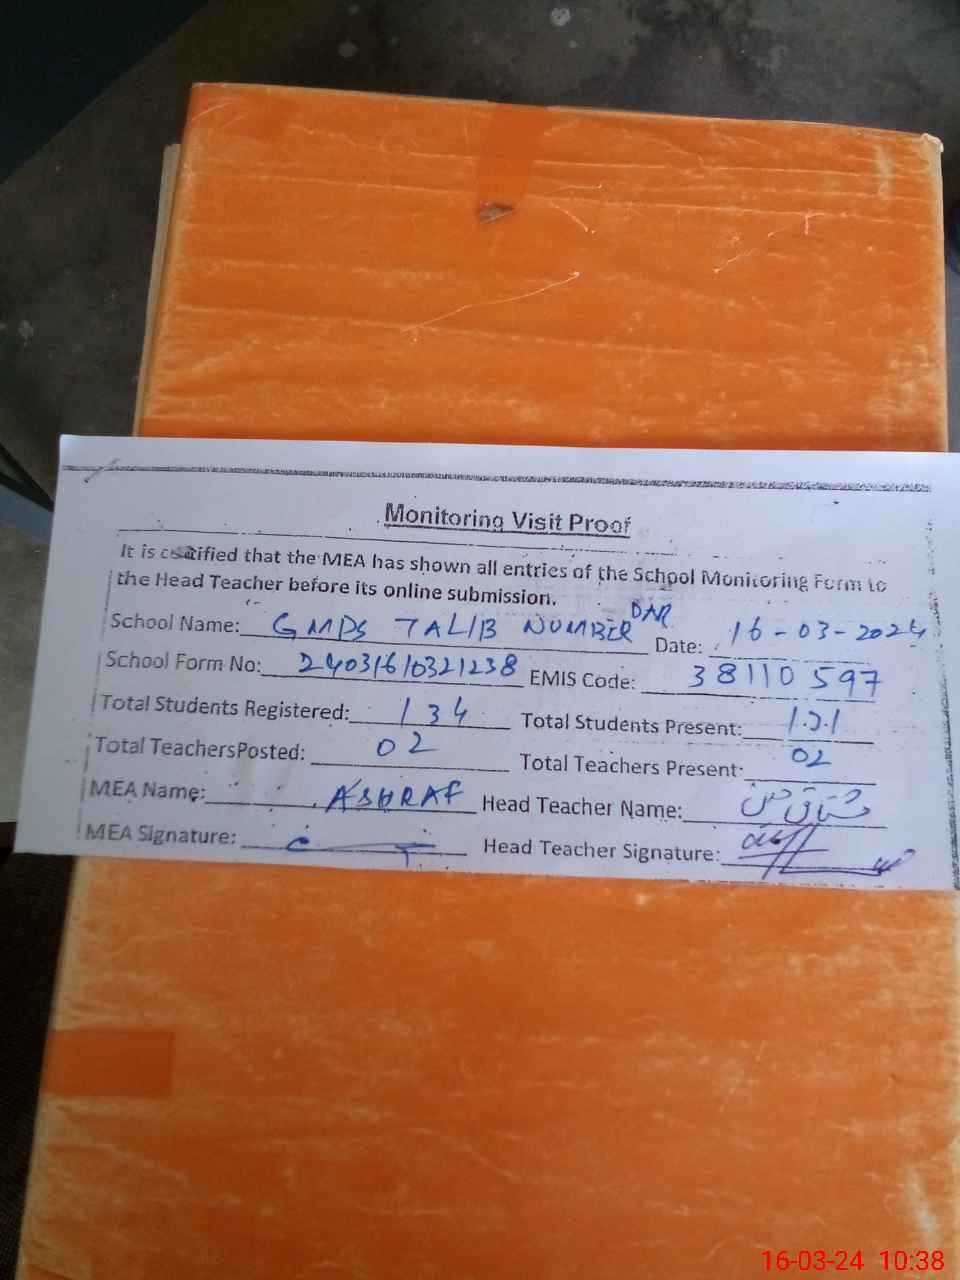 Monitoring Visit Proof
It is certified that the MEA has shown all entries of the School Monitoring Form to
the Head Teacher before its online submission.
School Name: GMPS TALIB NUMBERDAR Date: 16-03-2024
School Form No: 24031610321238 EMIS Code: 38110597
Total Students Registered: 134 Total Students Present:
Total TeachersPosted: 02 Total Teachers Present: 02
MEA Name: ASHRAF Head Teacher Name:
MEA Signature: Head Teacher Signature:
16-03-24 10:38